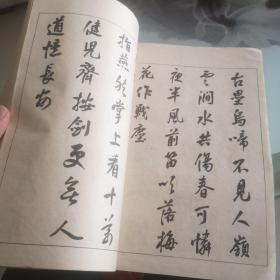 古壘烏啼不見人嶺
雲澗水共傷春可憐
夜半風前笛吹落梅
花作戰塵
指燕然掌上看十萬
健兒齊按劍更無人
道憶長安